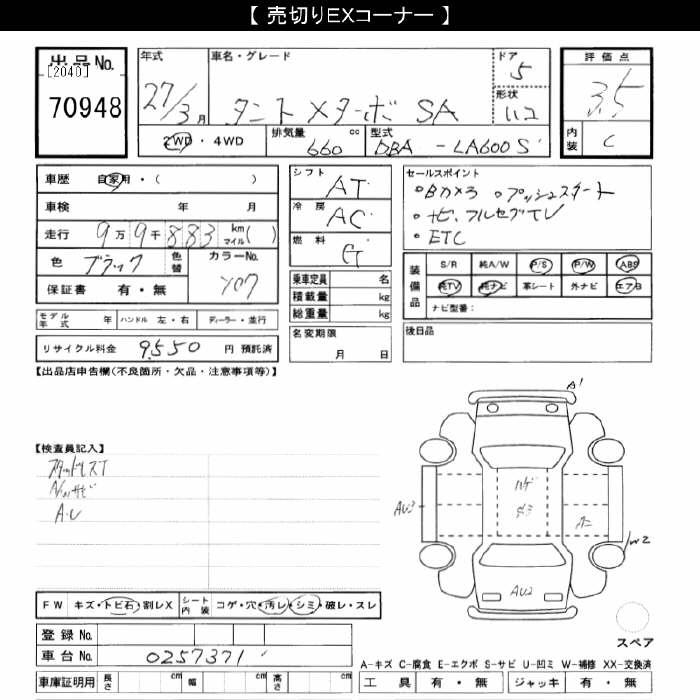 【 売切りEXコーナー 】
出品No.
[2040]
70948
年式
27/3月
車名・グレード
タント Xターボ SA
ドア
5
形状
ハコ
評価点
3.5
内装
C
2WD・4WD
排気量 660 cc
型式 DBA - LA600S
車歴 自家用・( )
車検 年 月
走行 9万9千883 km マイル( )
色 ブラック 色替 カラーNo. X07
保証書 有・無
モデル年式 年 ハンドル 左・右 ディーラー・並行
リサイクル料金 9550 円 預託済
シフト AT
冷房 AC
燃料 G
乗車定員 名
積載量 kg
総重量 kg
名変期限
月 日
セールスポイント
・Bカメラ ・プッシュスタート
・ナビ、フルセグTV
・ETC
装備品
S/R 純A/W P/S P/W ABS
純TV 純ナビ 革シート 外ナビ エアB
ナビ型番:
後日品
【出品店申告欄(不良箇所・欠品・注意事項等)】
【検査員記入】
A・U
A1
ハゲ
AU3
W2
AU2
FW キズ・トビ石・割レX シート内装 コゲ・穴・汚レ・シミ・破レ・スレ
登録No.
車台No. 0257371
車庫証明用 長さ cm 幅 cm 高さ cm
スペア
A-キズ C-腐食 E-エクボ S-サビ U-凹ミ W-補修 XX-交換済
工具 有・無 ジャッキ 有・無